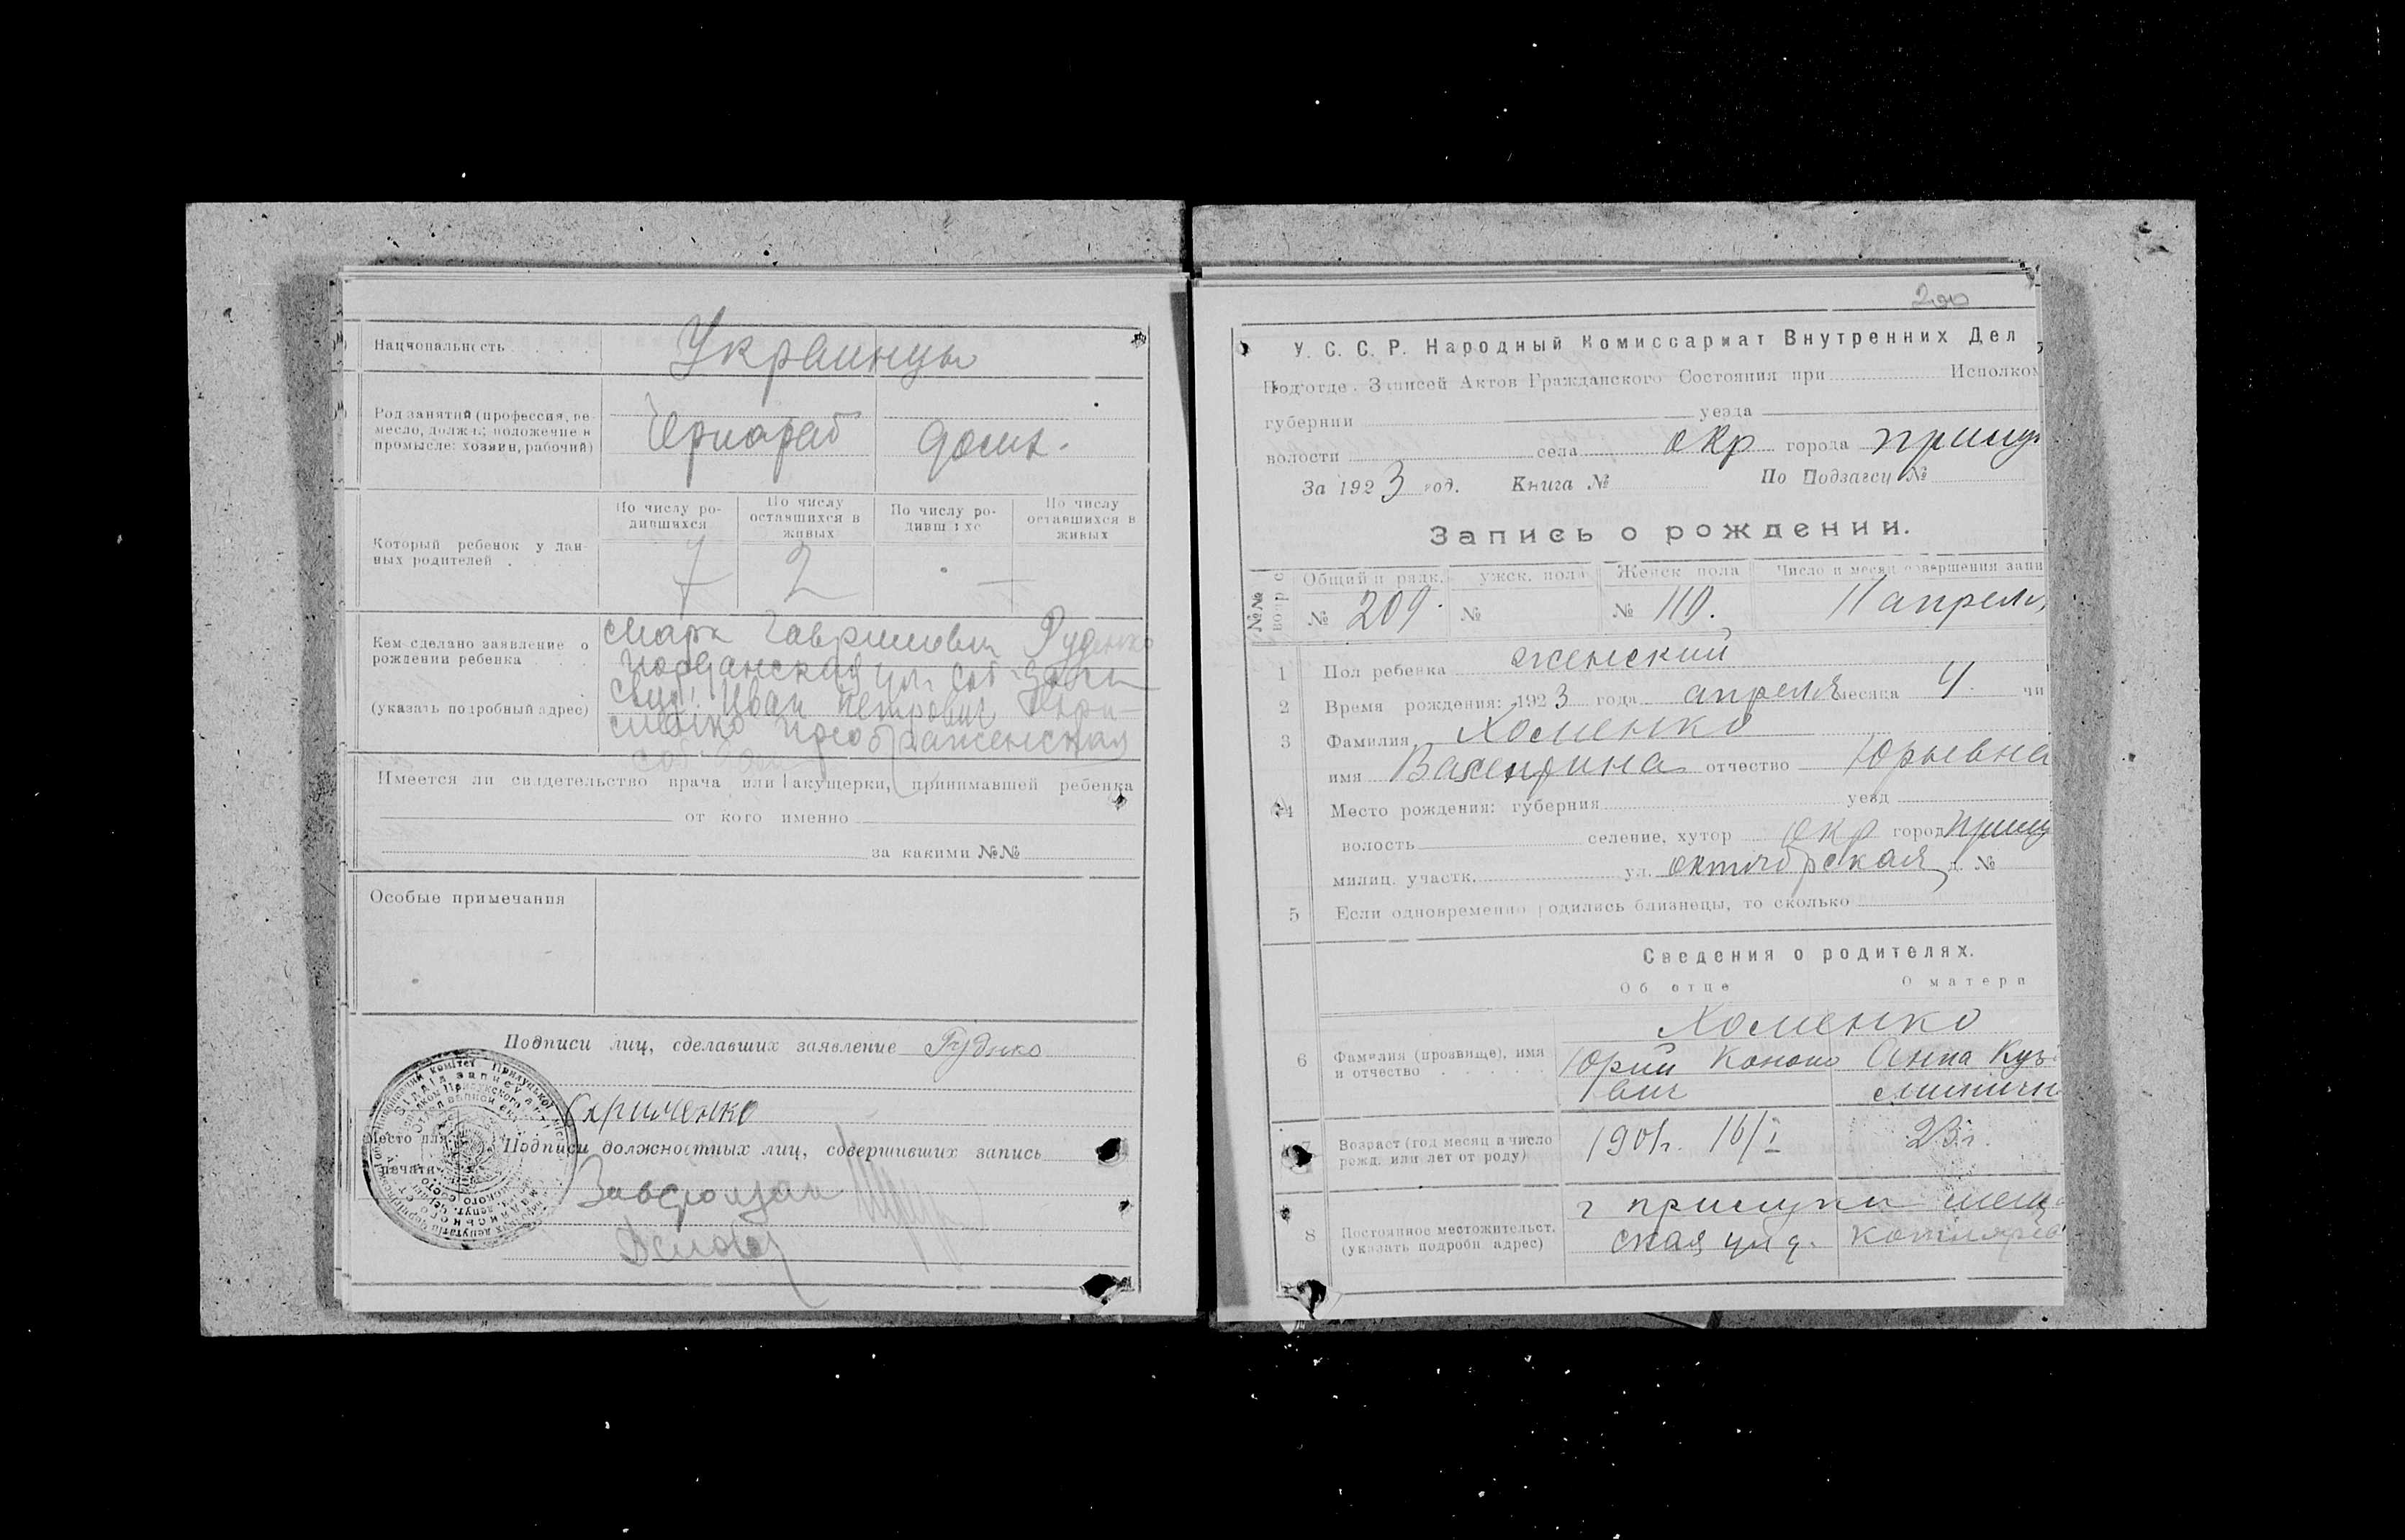 Национальность
Украинцы
Род занятий (профессия, ремесло, должн.; положение в промысле: хозяин, рабочий)
Чернораб
дом.х.
Который ребенок у данных родителей
По числу родившихся
По числу оставшихся в живых
По числу родивш хс
По числу оставшихся в живых
7
2
—
Кем сделано заявление о рождении ребенка
(указать подробный адрес)
Марк Гаврилович Руденко
ул. соб. дом
Иван Петрович
Преображенская
Имеется ли свидетельство врача или акушерки, принимавшей ребенка
от кого именно
за какими №№
Особые примечания
Подписи лиц, сделавших заявление Руденко
Подписи должностных лиц, совершивших запись
Место для печати
200
У. С. С. Р. Народный Комиссариат Внутренних Дел
Подотде. Записей Актов Гражданского Состояния при Исполком
губернии уезда
волости села окр города Прилу
За 1923 год. Книга № По Подзагсу №
Запись о рождении.
№№ вопрс
Общий п рядк. ужск. пола Женск пола Число и месяц совершения запи
№ 209. № № 110. 11 апреля
1 Пол ребенка женский
2 Время рождения: 1923 года апреля месяца 4. чи
3 Фамилия Хоменко
имя Валентина отчество Юрьевна
4 Место рождения: губерния уезд
волость селение, хутор окр город Прилу
милиц. участк. ул. октябрская д. №
5 Если одновременно родились близнецы, то сколько
Сведения о родителях.
Об отце О матери
6 Фамилия (прозвище), имя и отчество
Хоменко
Юрий Кононо
вич
Анна Кузь
миничн
7 Возраст (год месяц и число рожд. или лет от роду)
1901г. 16/I
23 г.
8 Постоянное местожительст. (указать подробн адрес)
г Прилуки
ская